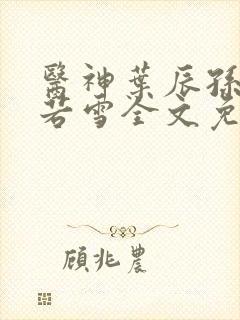 醫神葉辰孫
若雪全文免
顧兆農